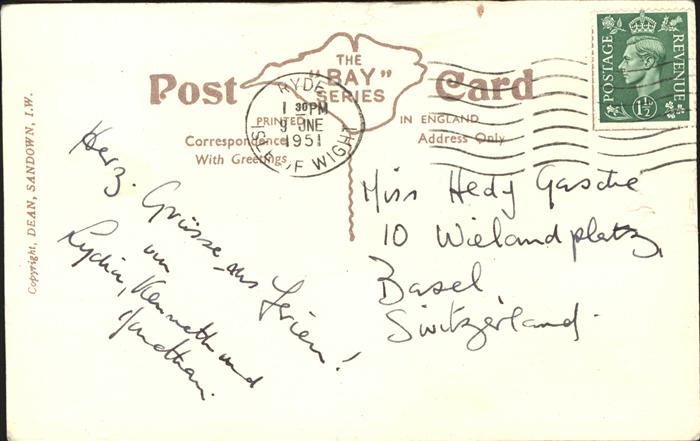 THE
Post "BAY" Card
SERIES
PRINTED IN ENGLAND
Correspondence Address Only
With Greetings
RYDE
1 30 PM
9 JNE
1951
ISLE OF WIGHT
POSTAGE
REVENUE
1½D
Copyright, DEAN, SANDOWN, I.W.
Herz. Grüsse aus Ferien!
von
Lydia, Kenneth und
Jonathan.
Miss Hedy Gasche
10 Wielandplatz,
Basel
Switzerland.